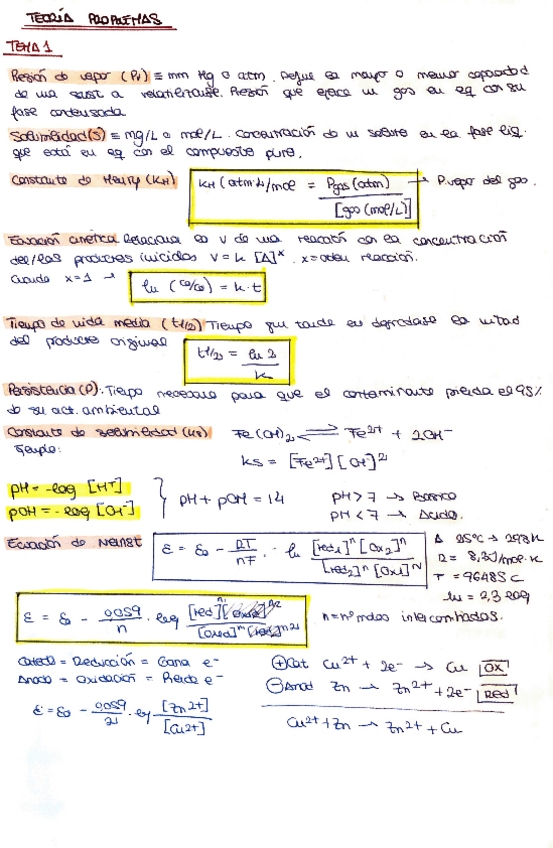 TEORÍA PROBLEMAS
TEMA 1
Presión de vapor (Pv) ≡ mm Hg o atm. Define la mayor o menor capacidad
de una sust. a volatilizarse. Presión que ejerce un gas en eq con su
fase condensada
Solubilidad (S) ≡ mg/L o mol/L. Concentración de un soluto en la fase líq.
que está en eq con el compuesto puro.
Constante de Henry (KH) KH (atm·L/mol = Pgas (atm) / [gas (mol/L)] → P. vapor del gas.
Ecuación cinética Relaciona la V de una reacción con la concentración
del/los productos iniciales V = k [A]^x. x = orden reacción.
Cuando x=1 → ln (C0/Ce) = k·t
Tiempo de vida media (t1/2) Tiempo que tarda en degradarse la mitad
del producto original t1/2 = ln 2 / k
Persistencia (P): Tiempo necesario para que el contaminante pierda el 95%
de su act. ambiental
Constante de solubilidad (Ks) Fe(OH)2 ⇌ Fe2+ + 2OH-
Ejemplo: Ks = [Fe2+][OH-]^2
pH = -log [H+]
pOH = -log [OH-] } pH + pOH = 14
pH > 7 → Básico
pH < 7 → Ácido.
Ecuación de Nernst ε = ε0 - RT/nF · ln [red1]^n [Ox2]^n / [red2]^n [Ox1]^n
Δ 25ºC → 298K
R = 8,3 J/mol·K
T = 96485 C
ln = 2,3 log
ε = ε0 - 0,059/n · log
n = nº moles intercambiados.
Catodo = Reducción = Gana e-
Anodo = Oxidación = Pierde e-
⊕ Cat Cu2+ + 2e- → Cu OX
⊖ Anod Zn → Zn2+ + 2e- Red
ε = ε0 - 0,059/2 · log [Zn2+]/[Cu2+]
Cu2+ + Zn → Zn2+ + Cu